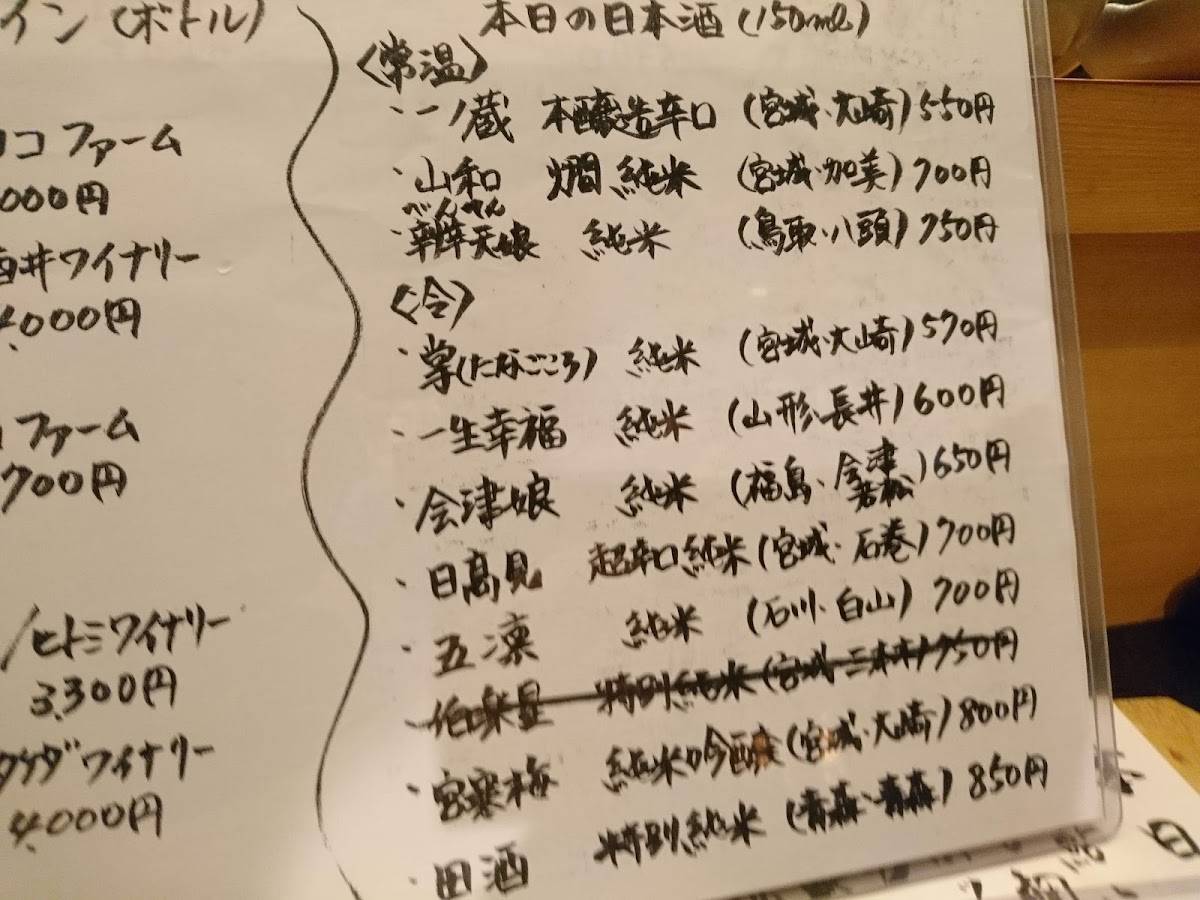 イン(ボトル)
ココファーム
000円
酒井ワイナリー
4,000円
ファーム
700円
ヒトミワイナリー
3,300円
タケダワイナリー
4,000円
本日の日本酒(150ml)
<常温>
・一ノ蔵 本醸造辛口 (宮城・大崎) 550円
・山和 燗純米 (宮城・加美) 700円
べんてん
・辨天娘 純米 (鳥取・八頭) 750円
<冷>
・掌(たなごころ) 純米 (宮城・大崎) 570円
・一生幸福 純米 (山形・長井) 600円
・会津娘 純米 (福島・会津若松) 650円
・日高見 超辛口純米 (宮城・石巻) 700円
・五凛 純米 (石川・白山) 700円
・伯楽星 特別純米 (宮城・三本木) 750円
・宮寒梅 純米吟醸 (宮城・大崎) 800円
・田酒 特別純米 (青森・青森) 850円